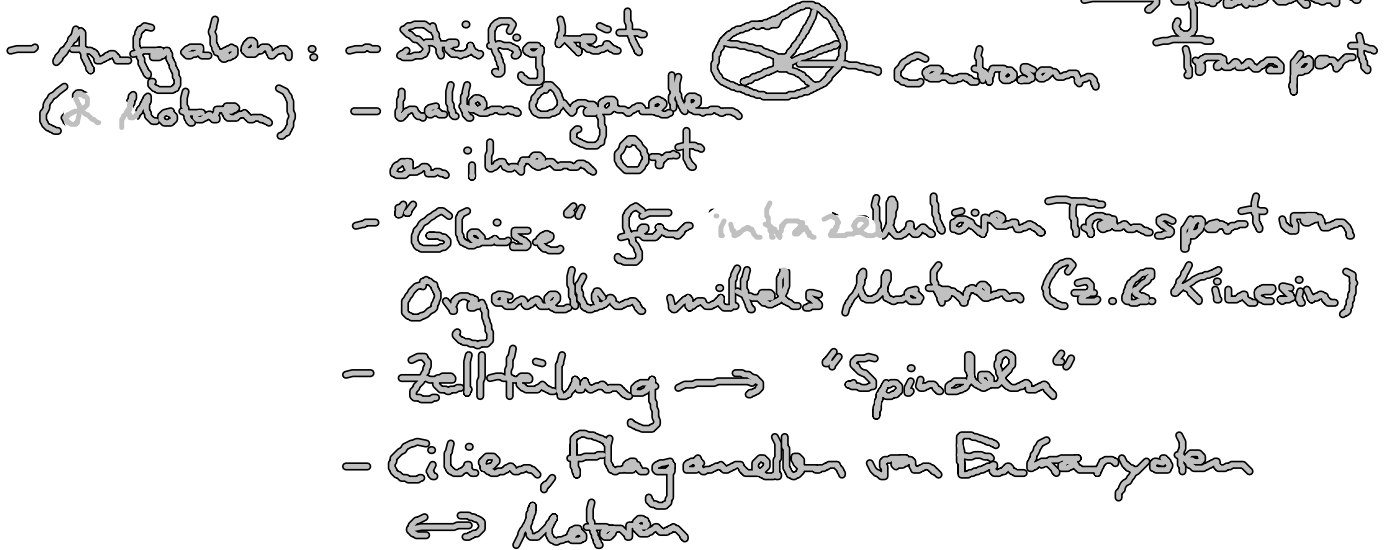 - Aufgaben: - Steifigkeit Centrosom Transport
(& Motoren) - halten Organellen
an ihrem Ort
- "Gleise" für intrazellulären Transport von
Organellen mittels Motoren (z.B. Kinesin)
- Zellteilung → "Spindeln"
- Cilien, Flaganellen von Eukaryoten
↔ Motoren